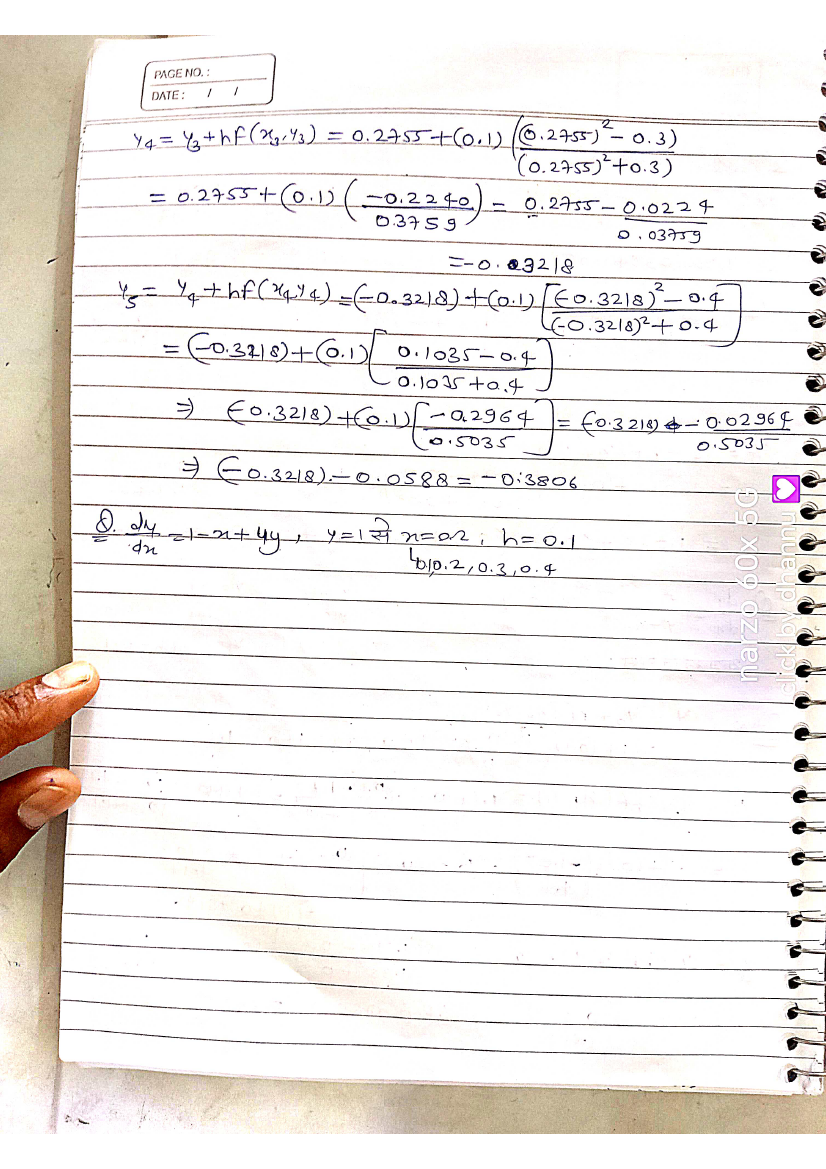 PAGE NO. :
DATE : / /
y₄ = y₃ + hf(x₃,y₃) = 0.2755 + (0.1) ((0.2755)² - 0.3) / ((0.2755)² + 0.3)
= 0.2755 + (0.1) (-0.2240 / 0.3759) = 0.2755 - 0.0224 / 0.03759
= -0.3218
y₅ = y₄ + hf(x₄,y₄) = (-0.3218) + (0.1) [(-0.3218)² - 0.4 / (-0.3218)² + 0.4]
= (-0.3218) + (0.1) [0.1035 - 0.4 / 0.1035 + 0.4]
⇒ (-0.3218) + (0.1) [-0.2964 / 0.5035] = (-0.3218) - 0.02964 / 0.5035
⇒ (-0.3218) - 0.0588 = -0.3806
Q. dy/dx = 1 - x + 4y , y = 1 से x = 0.2 ; h = 0.1
0.2, 0.3, 0.4
narzo 60x 5G
click by dhannu